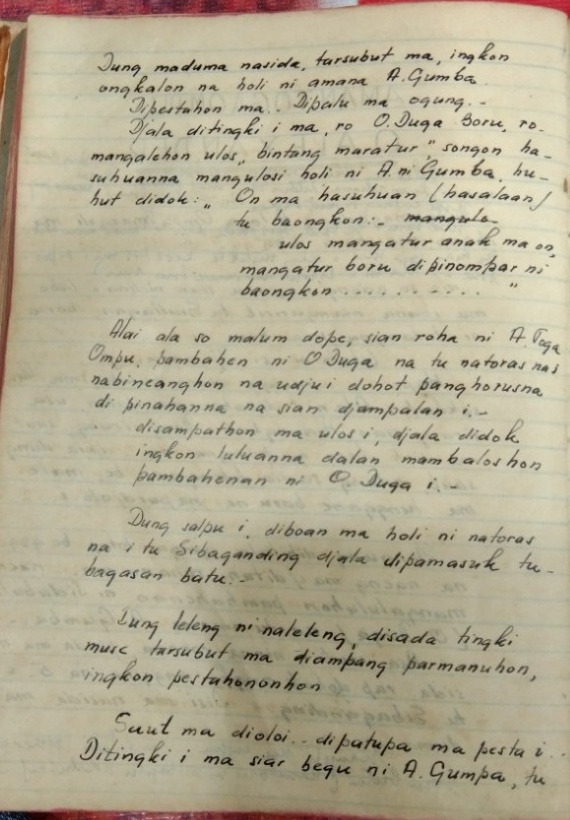 Dung maduma nasida, tarsubut ma, ingkon
ongkalon na holi ni amana A. Gumba.
Dipestahon ma.. Dipalu ma ogung. -
Djala ditingki i ma, ro O. Duga Boru, ro-
mangalehon ulos „ bintang maratur," songon ha-
suhuanna mangulosi holi ni A. ni Gumba, hu-
hut didok: „ On ma hasuhuan (hasalaan)
tu baongkon: - mangulo-
ulos mangatur anak ma on,
mangatur boru di pinompar ni
baongkon .......... "
Alai ala so malum dope, sian roha ni A. Toga
Ompu, pambahen ni O Duga na tu natoras nas
na udjui dohot panghorusna
di pinahanna na sian djampalan i. -
disampathon ma ulos i, djala didok
ingkon luluanna dalan mambaloshon
pambahenan ni O. Duga i. -
Dung salpu i, diboan ma holi ni natoras
na i tu Sibaganding djala dipamasuk tu-
bagasan batu. -
Dung leleng ni naleleng, disada tingki
muse tarsubut ma diampang parmanuhon,
ingkon pestahononhon
Saut ma dioloi.. dipatupa ma pesta i..
Ditingki i ma siar begu ni A. Gumpa, tu